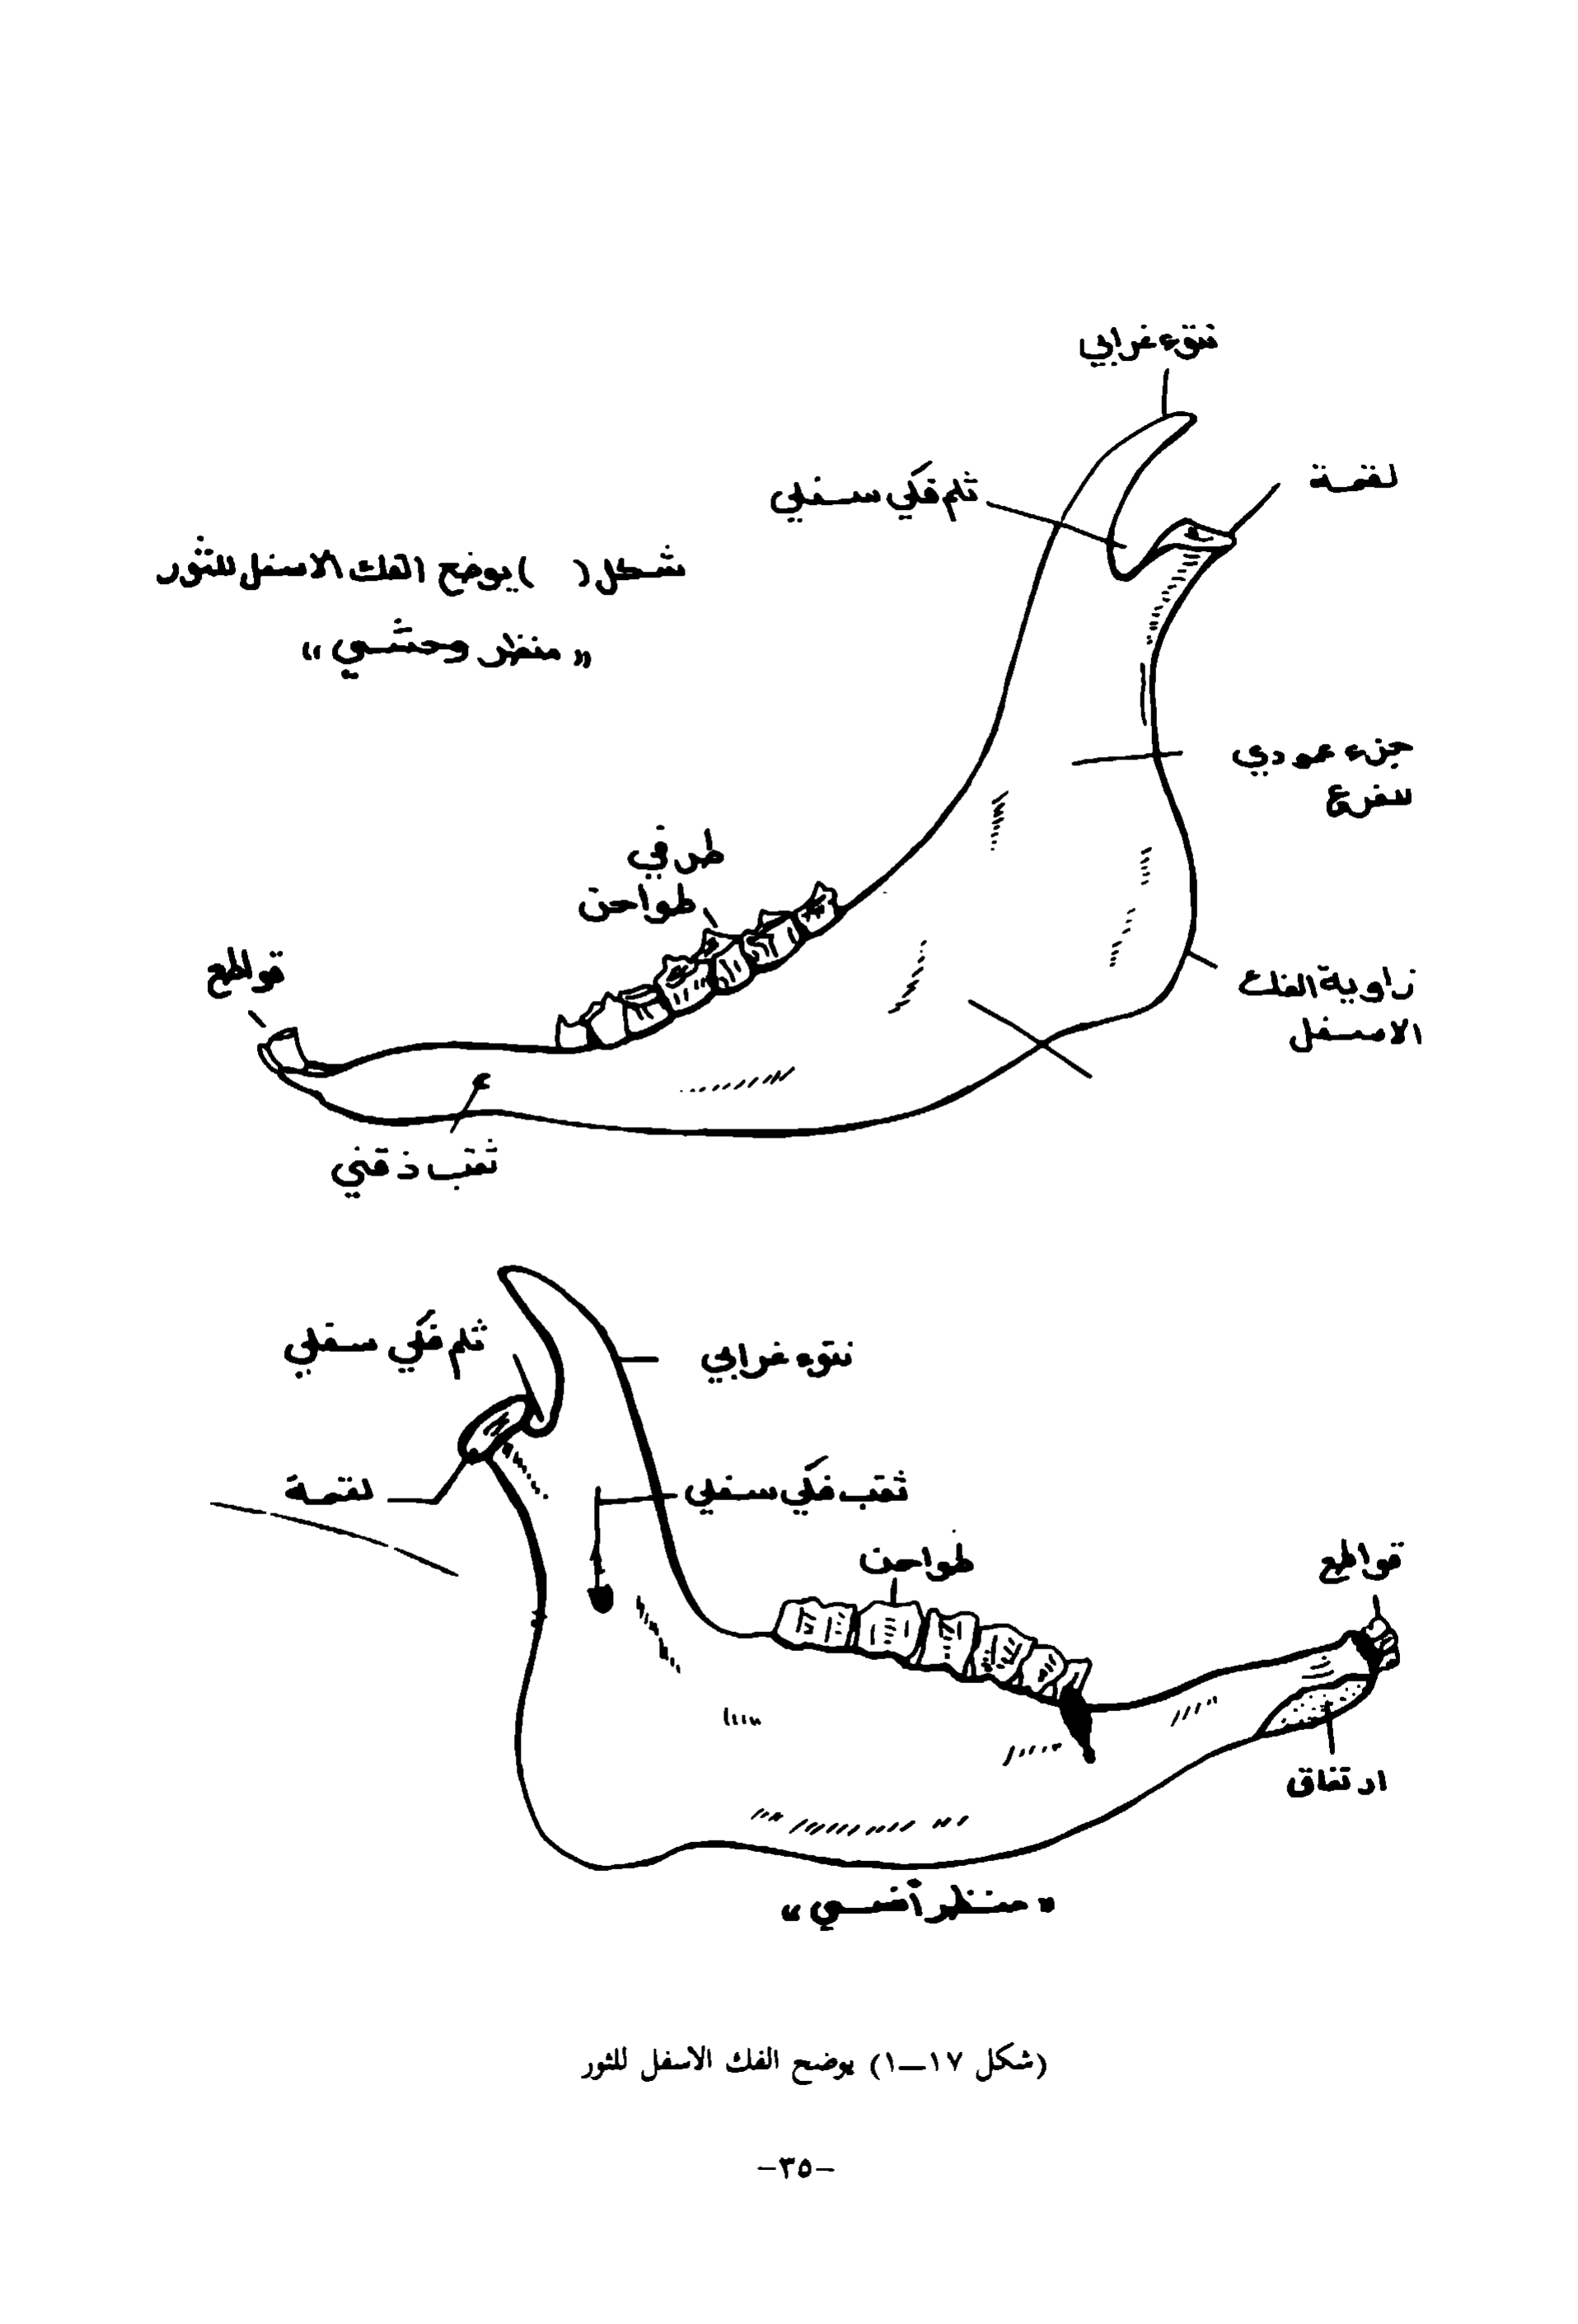 نتوء غرابي
لقمة
ثلم فكي سفلي
شكل (   ) يوضح الفك الاسفل للثور
« منظر وحشي »
جزء عمودي
للفرع
طرفي
طواحن
قواطع
زاوية الفك
الاسفل
ثقب ذقني
ثلم فكي سفلي
نتوء غرابي
لقمة
ثقب فكي سفلي
طواحن
قواطع
ارتفاق
« منظر أنسي »
(شكل ١٧—١) يوضح الفك الاسفل للثور
-٣٥-